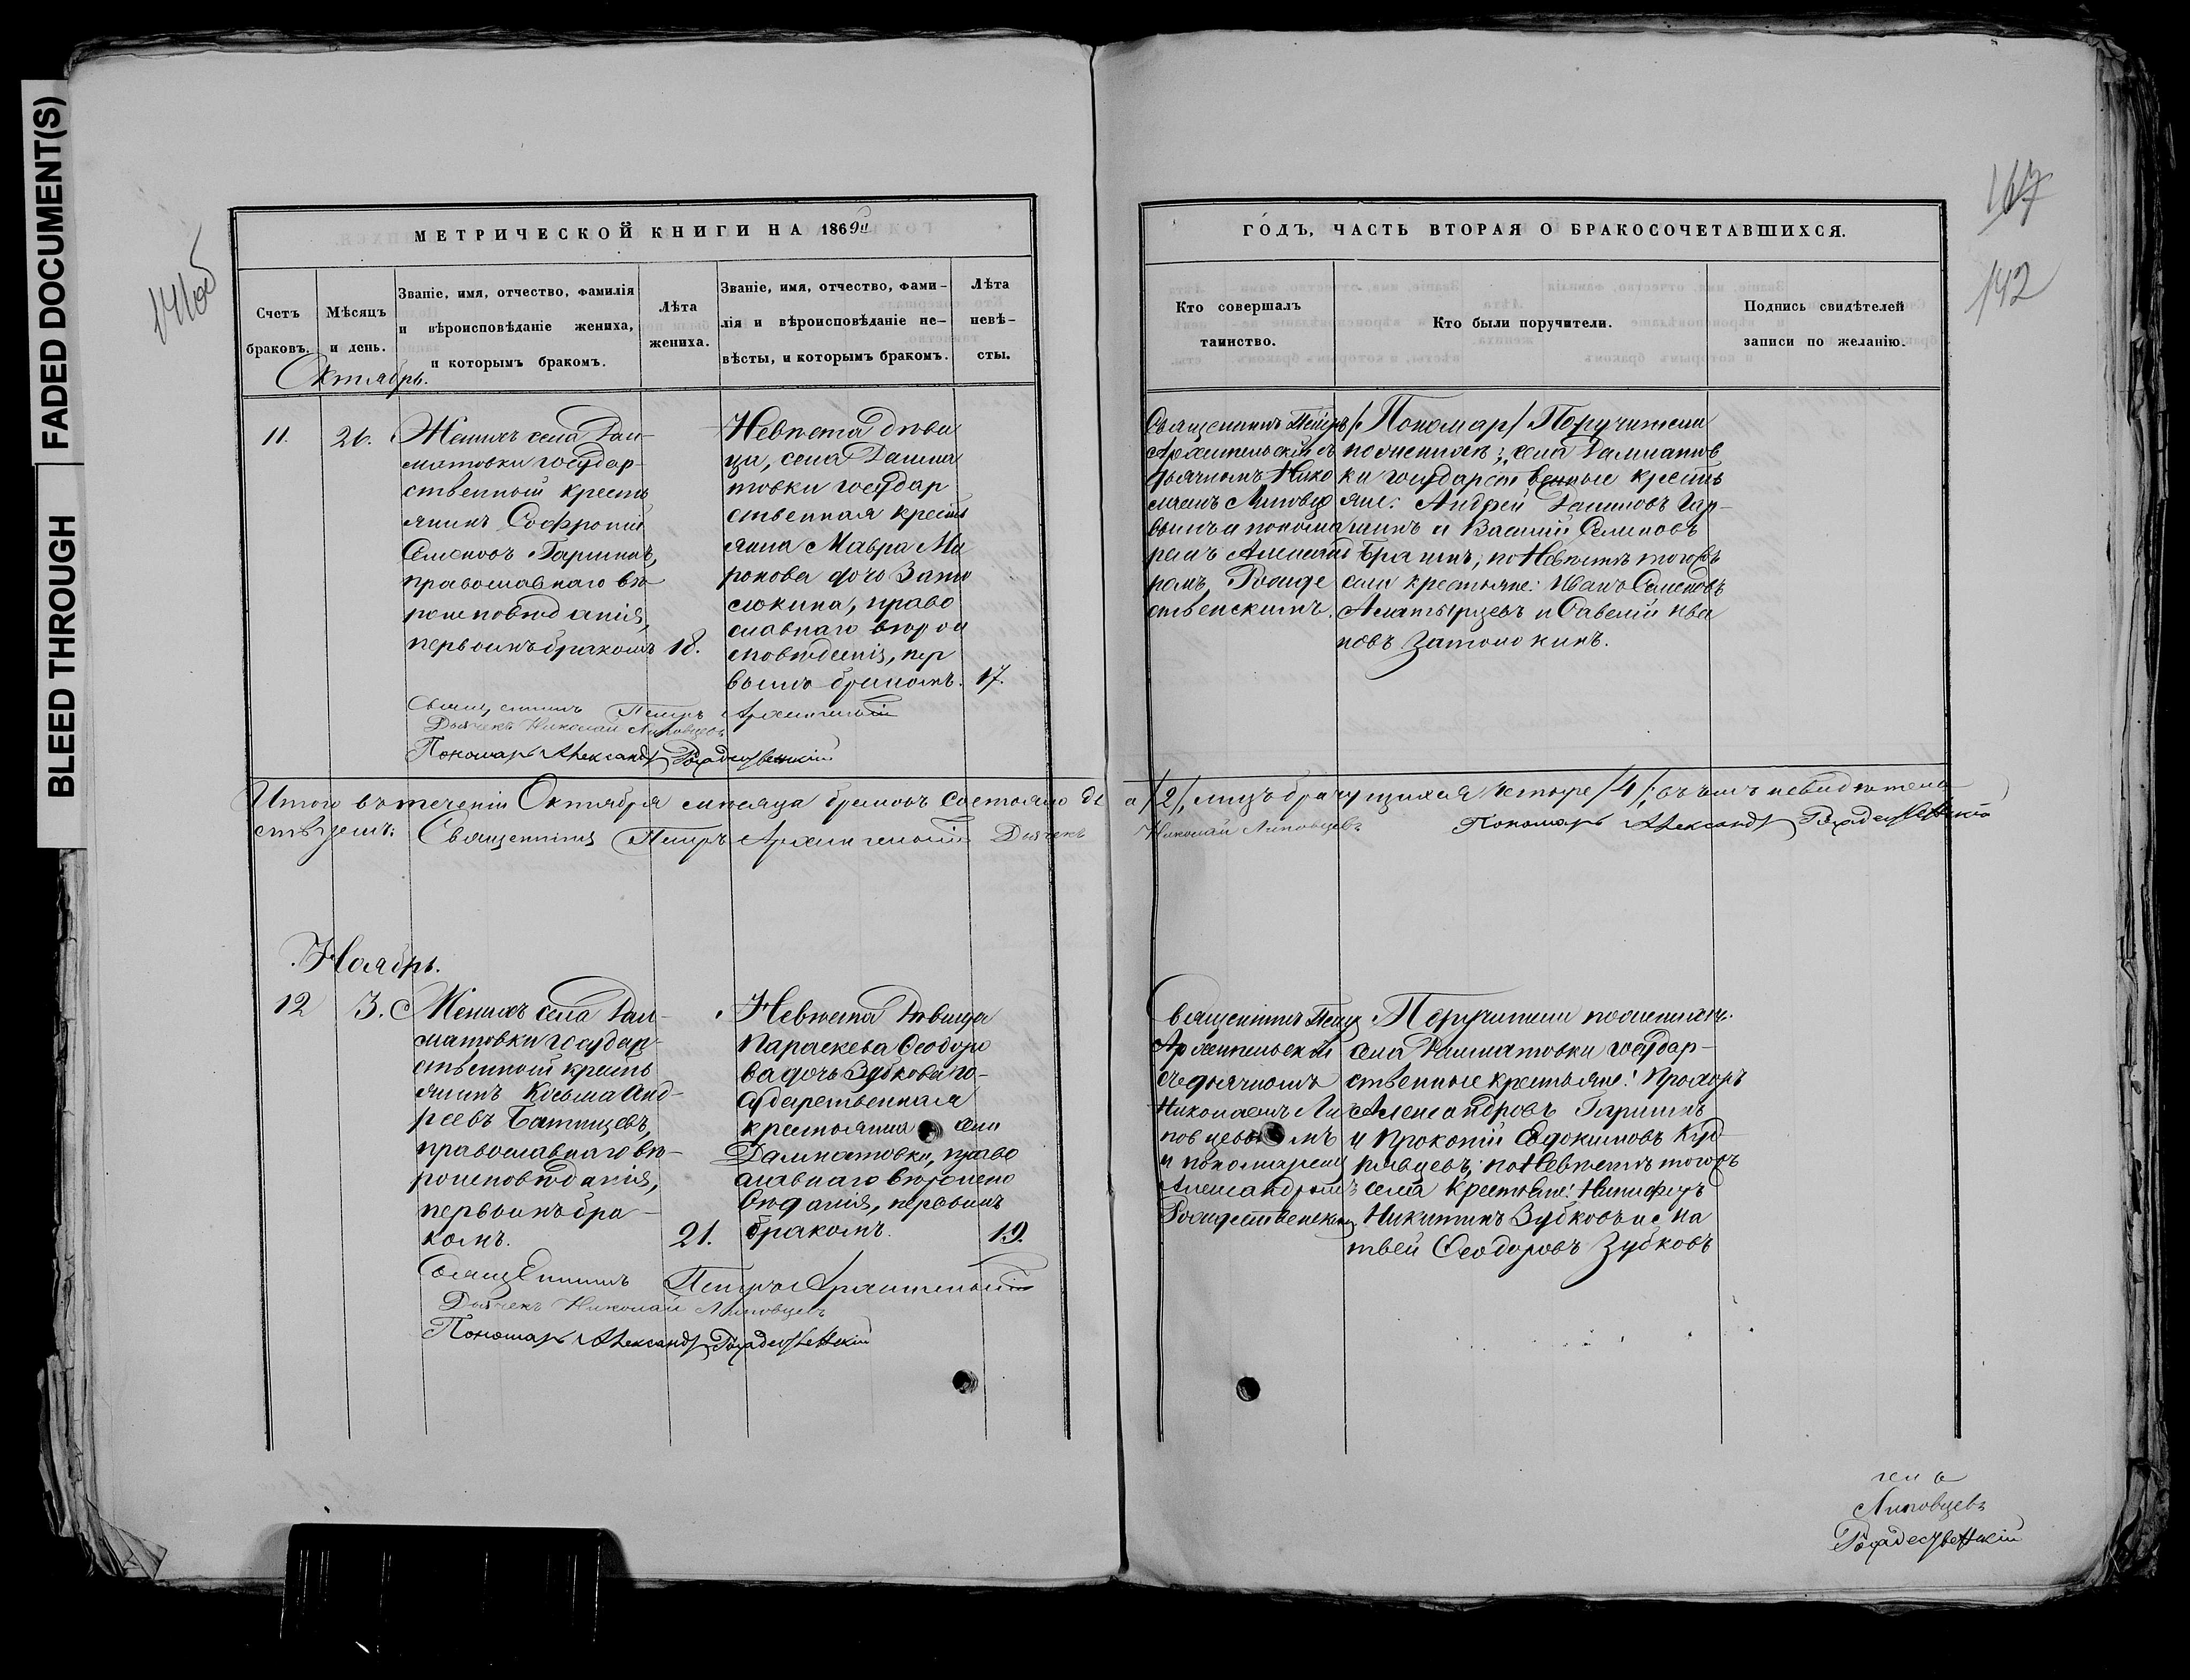 FADED DOCUMENT(S)
BLEED THROUGH
141об
167
142
МЕТРИЧЕСКОЙ КНИГИ НА 1869й
Счетъ браковъ.
Мѣсяцъ и день.
Званіе, имя, отчество, фамилія
и вѣроисповѣданіе жениха,
и которымъ бракомъ.
Лѣта
жениха.
Званіе, имя, отчество, фами-
лія и вѣроисповѣданіе не-
вѣсты, и которымъ бракомъ.
Лѣта
невѣ-
сты.
Октябрь.
11.
26.
Женихъ села Дал-
матовки государ-
ственный кресть
янинъ Софроній
Семеновъ Гаршинъ,
православнаго вѣ-
роисповѣданія,
первымъ бракомъ
18.
Невѣста дѣви
ца, села Далма
товки государ
ственная кресть
янка Мавра Ми
ронова дочь Зато
локина, право
славнаго вѣрои
сповѣденія, пер
вымъ бракомъ.
17.
Священникъ Петръ Архангельскій
Дьячекъ Николай Липовцевъ
Пономарь Александръ Рождественскій
Итого въ теченіи Октября мѣсяца браковъ состояло два
ствуемъ: Священникъ Петръ Архангельскій Дьячекъ
Ноябрь.
12
3.
Женихъ села Дал-
матовки государ-
ственный кресть
янинъ Косьма Анд-
реевъ Батищевъ,
православнаго вѣ-
роисповѣданія,
первымъ бра-
комъ.
21.
Невѣста Дѣвица
Параскева Ѳеодоро
ва дочь Зубкова го-
сударственная
крестьянка села
Далматовки, право
славнаго вѣроиспо
вѣданія, первымъ
бракомъ.
19.
Священникъ Петръ Архангельскій
Дьячекъ Николай Липовцевъ
Пономарь Александръ Рождественскій
ГОДЪ, ЧАСТЬ ВТОРАЯ О БРАКОСОЧЕТАВШИХСЯ.
Кто совершалъ
таинство.
Кто были поручители.
Подпись свидѣтелей
записи по желанію.
Священникъ Петръ
Архангельскій съ
дьячкомъ Нико
лаемъ Липовце
вымъ и понома
ремъ Александ
ромъ Рожде
ственскимъ.
/Пономар/ Поручители
по женихѣ: села Далматов
ки государственные кресть
яне: Андрей Гар-
шинъ и Василій Семеновъ
по Невѣстѣ тогожъ
села крестьяне: Иванъ Семеновъ
Алатырцевъ и Савелій Ива
новъ Затолокинъ.
а /2/, лицъ брачущихся четыре /4/, въ чемъ и свидѣтель
Николай Липовцевъ Пономарь Александръ Рождественскій
Священникъ Петръ
Архангельскій
съ дьячкомъ
Николаемъ Ли
повцевымъ
и пономаремъ
Александромъ
Рождественскимъ.
Поручители по женихѣ:
села Далматовки государ-
ственные крестьяне: Прохоръ
Александровъ Гаршинъ
и Прокопій Евдокимовъ Куд-
рявцевъ; по Невѣстѣ тогожъ
села крестьяне: Никифоръ
Никитинъ Зубковъ и Ма
твей Ѳеодоровъ Зубковъ
Липовцевъ
Рождественскій